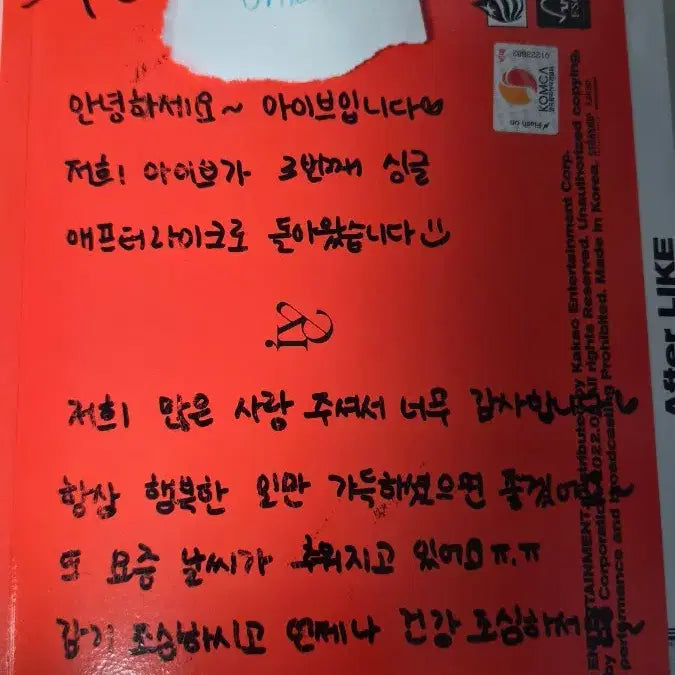 안녕하세요~ 아이브입니다♡
저희! 아이브가 3번째 싱글
애프터라이크로 돌아왔습니다
저희 많은 사랑 주셔서 너무 감사합니
항상 행복한 일만 가득하셨으면 좋겠어
또 요즘 날씨가 추워지고 있어요ㅠ.ㅠ
감기 조심하시고 언제나 건강 조심해서
01223982
KOMCA
After LIKE
by Kakao Entertainment Corp.
All rights Reserved. Unauthorized copying,
performance and broadcasting Prohibited. Made in Korea.